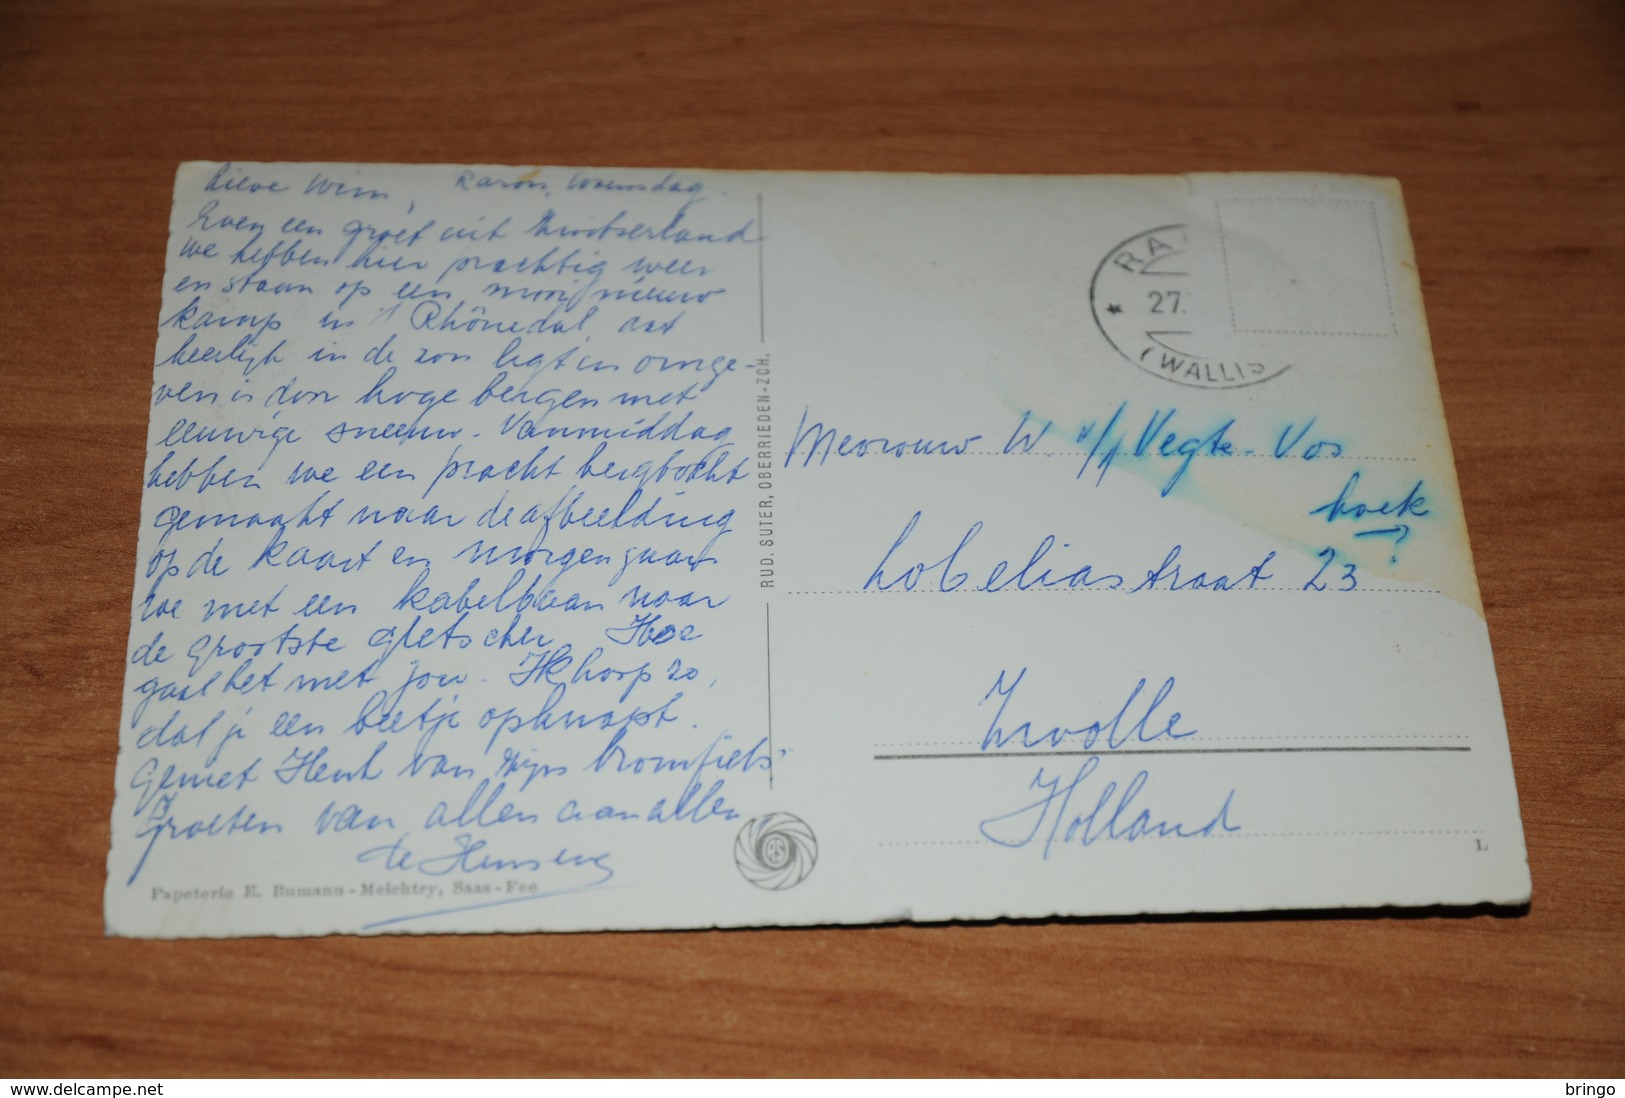 Lieve Wim, Raron, Woensdag
Even een groet uit Zwitserland
we hebben hier prachtig weer
en staan op een mooi nieuw
kamp in 't Rhônedal, dat
heerlijk in de zon ligt en omge-
ven is door hoge bergen met
eeuwige sneeuw. Vanmiddag
hebben we een pracht bergtocht
gemaakt naar de afbeelding
op de kaart en morgen gaan
we met een kabelbaan naar
de grootste gletscher. Hoe
gaat het met jou. Ik hoop zo,
dat je een beetje opknapt.
Geniet Henk van zijn bromfiets?
Groeten van allen aan allen
Papeterie E. Bumann-Meichtry, Saas-Fee
RUD. SUTER, OBERRIEDEN-ZCH.
RA
27.
(WALLIS
Mevrouw W. v/d Vegte-Vos
hoek
?
Lobeliastraat 23
Zwolle
Holland
L
delcampe.net
bringo